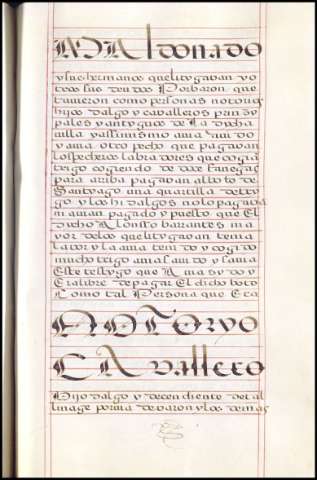 MALdonado
y sus hermanos que litygavan y o
tros sus deudos Probaron que
tuvieron como personas notorios
hijos dalgo y cavalleros prinçi
pales y antyguos de La dycha
villa y assimismo avia avi do
y avia otro pecho que pagavan
los pecheros labradores que cogia
trigo cogiendo de doze fanegas
para arriba pagavan al voto de
Santyago una quartilla de try
go y los hi dalgos no lo pagava
ni avian pagado y puesto que El
dycho Alonsso barrantes ma
yor de los que litygavan tenia
labor y la avia teni do y cogi do
mucho trigo avia savi do y savia
Este testygo que A via sy do y
Era libre de pagar El dicho boto
Como tal Persona que Era
NOTORYO
CAvallero
Hijo dalgo y decendiente de tal
linage por via de varon y los demas